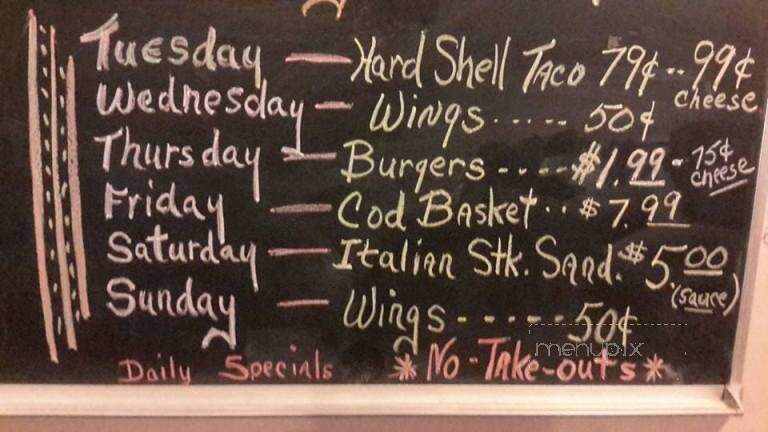 Tuesday — Hard Shell Taco 79¢ -- 99¢ cheese
Wednesday — Wings ----- 50¢
Thursday — Burgers ---- $1.99 - 75¢ cheese
Friday — Cod Basket -- $7.99
Saturday — Italian Stk. Sand. $5.00 (sauce)
Sunday — Wings ----- 50¢
menupix
Daily Specials * No-Take-outs *